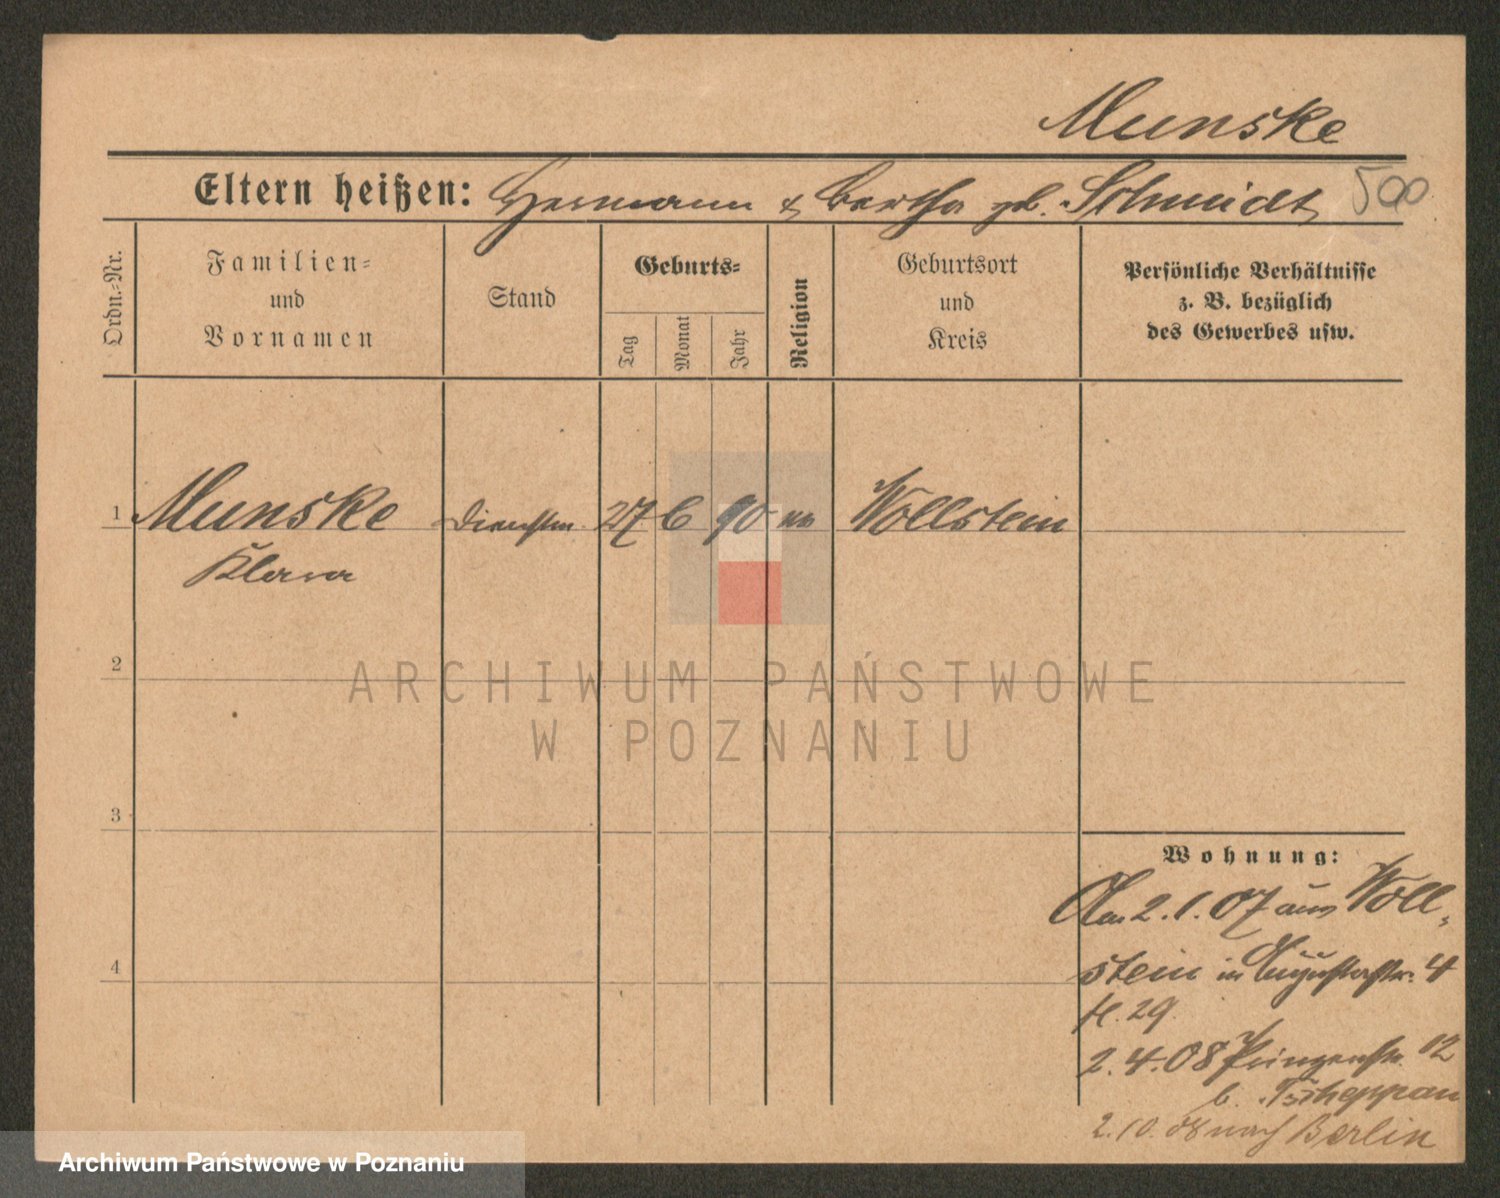 Munske
Eltern heißen: Hermann & Bertha geb. Schmidt 500
Ordn.=Nr.
Familien=
und
Vornamen
Stand
Geburts=
Tag
Monat
Jahr
Religion
Geburtsort
und
Kreis
Persönliche Verhältnisse
z. B. bezüglich
des Gewerbes usw.
1 Munske Dienstm. 27 6 90 Wollstein
Klara
2
ARCHIWUM PAŃSTWOWE
W POZNANIU
3
Wohnung:
Am 2.1.07 aus Woll-
stein in Augustastr. 4
4
29
2.4.08 Prinzenstr. 12
b. Tscheppan
2.10.08 nach Berlin
Archiwum Państwowe w Poznaniu